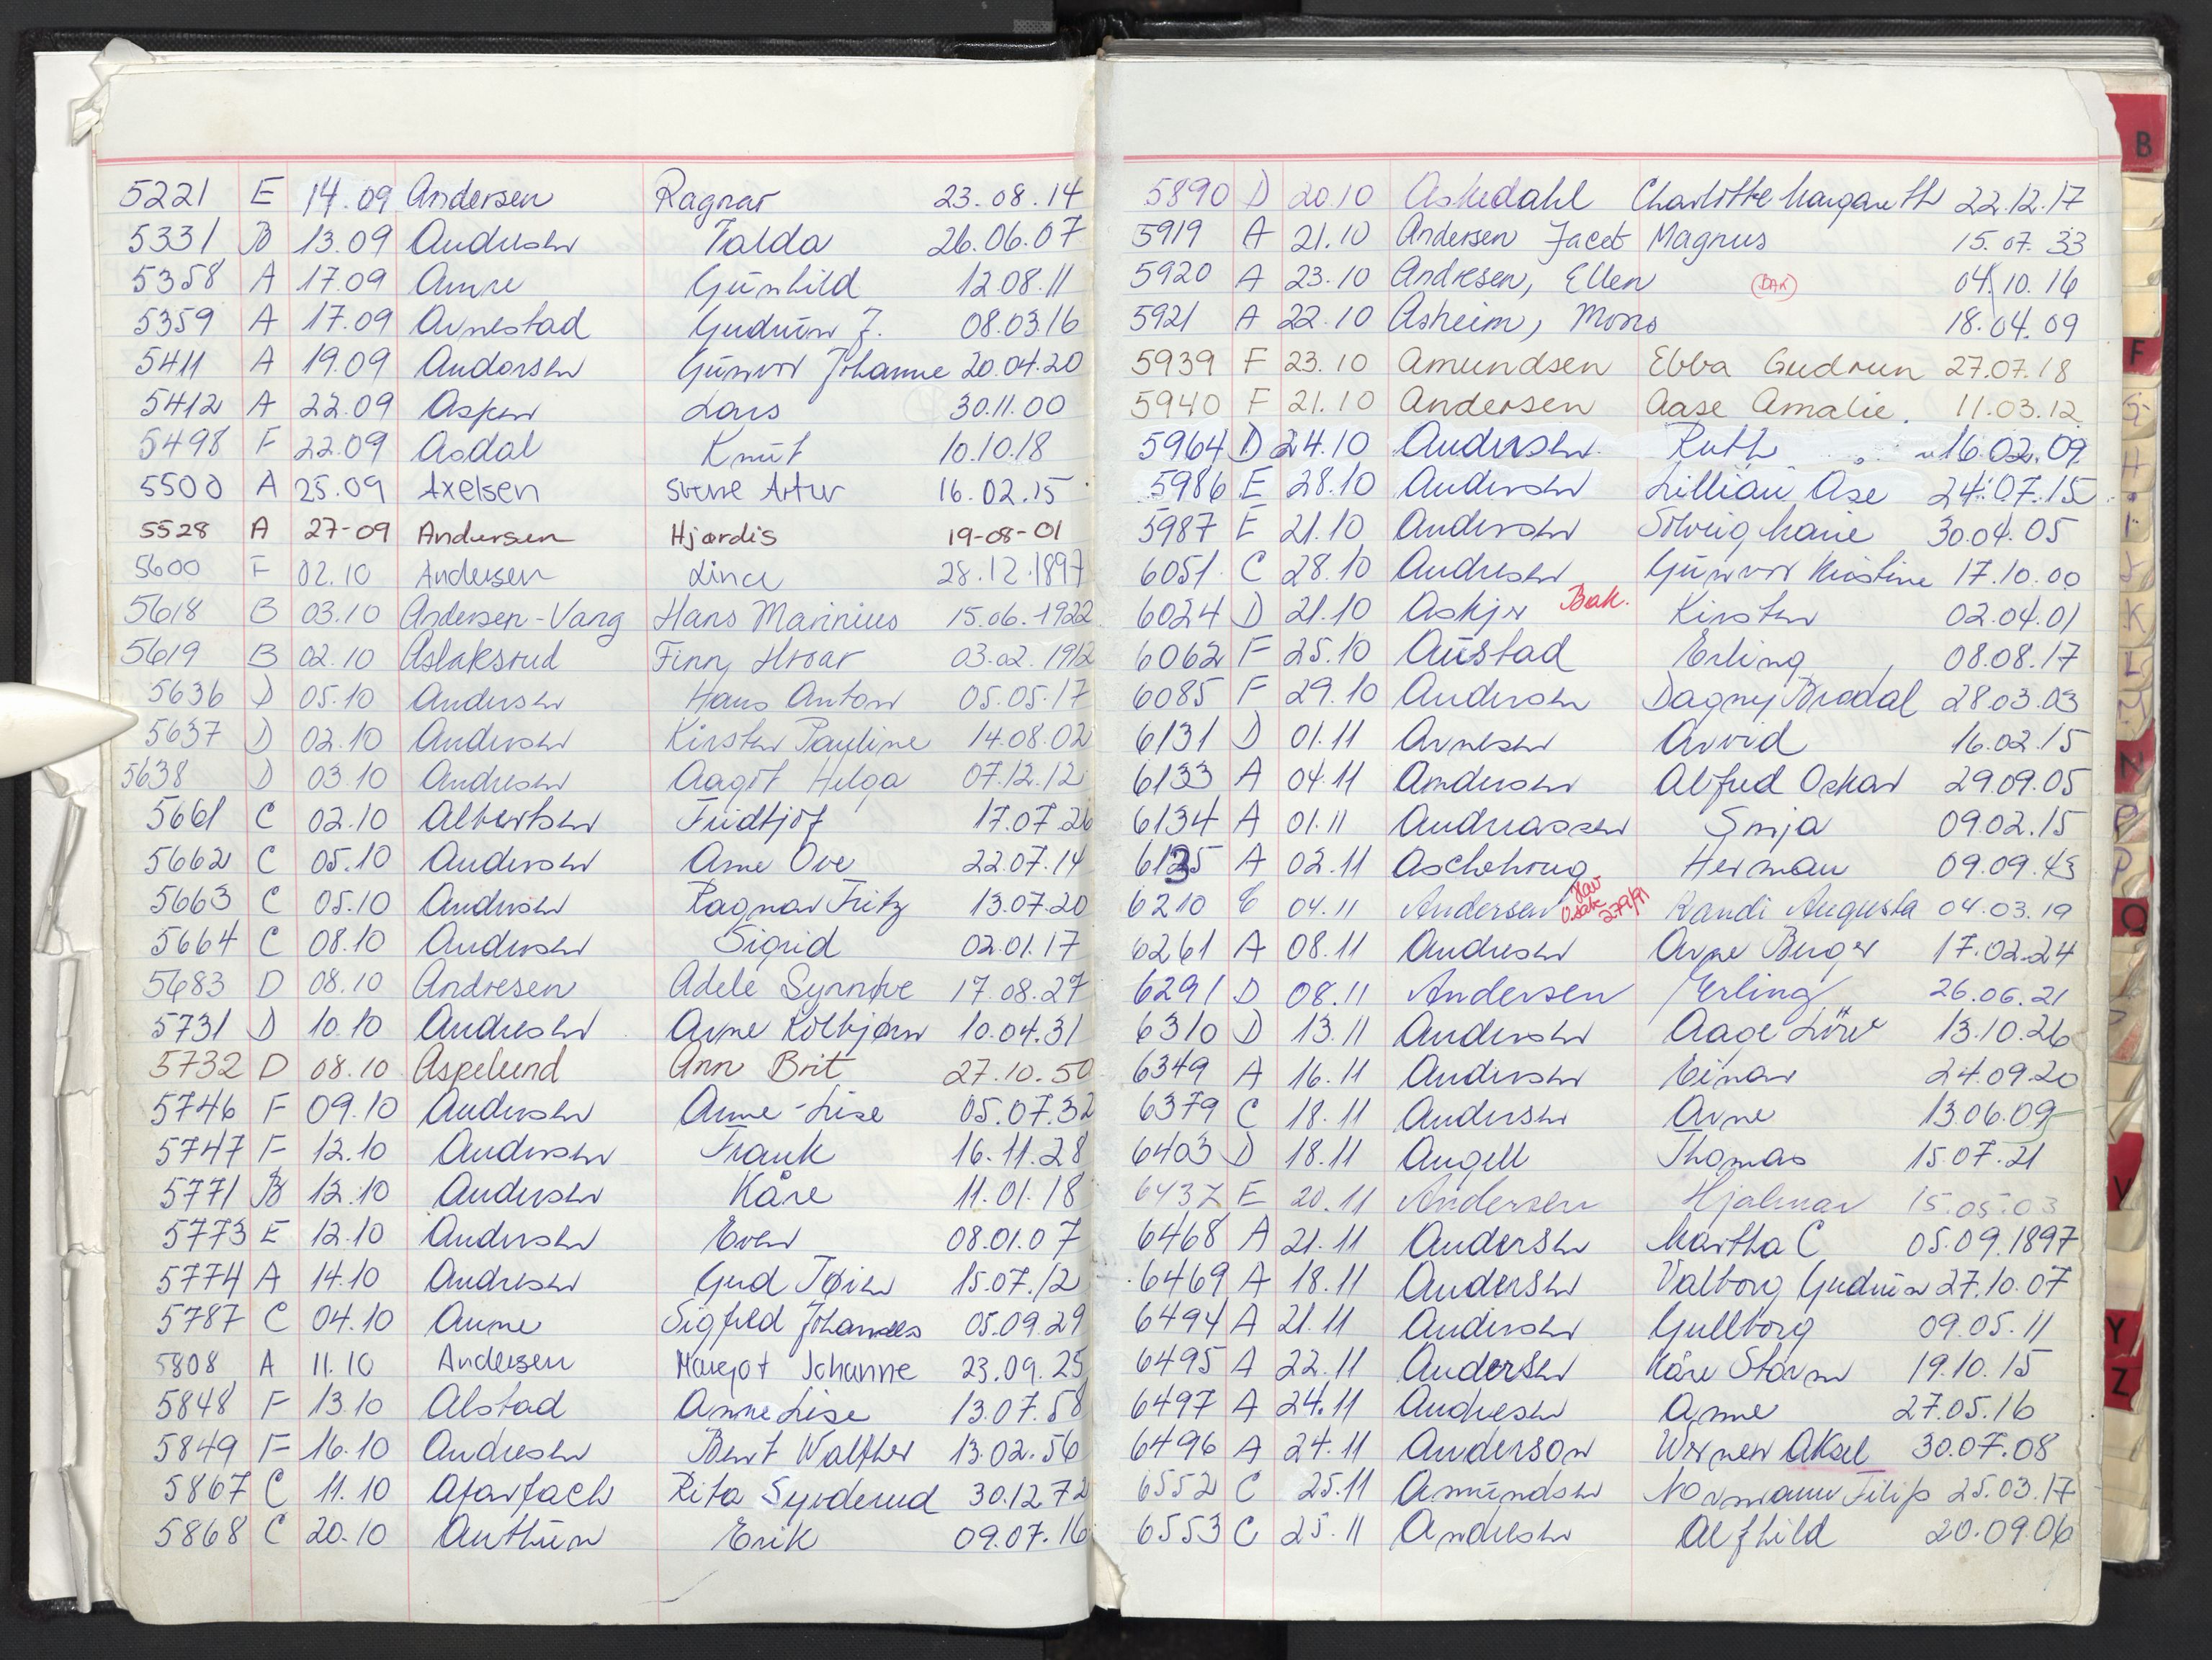 5221 E 14.09 Andersen Ragnar 23.08.14
5331 B 13.09 Andersen Talda 26.06.07
5358 A 17.09 Amre Gunhild 12.08.11
5359 A 17.09 Arnestad Gudrun J. 08.03.16
5411 A 19.09 Andersen Gunvor Johanne 20.04.20
5412 A 22.09 Asper Lars 30.11.00
5498 F 22.09 Asdal Knut 10.10.18
5500 A 25.09 Axelsen Sverre Artur 16.02.15
5528 A 27-09 Andersen Hjørdis 19-08-01
5600 F 02.10 Andersen Lince 28.12.1897
5618 B 03.10 Andersen-Vang Hans Marinius 15.06.1922
5619 B 02.10 Aslaksrud Finn Hroar 03.02.1912
5636 D 05.10 Andersen Hans Anton 05.05.17
5637 D 02.10 Andersen Kirsten Pauline 14.08.02
5638 D 03.10 Andresen Aagot Helga 07.12.12
5661 C 02.10 Albertsen Fridtjof 17.07.26
5662 C 05.10 Andersen Arne Ove 22.07.14
5663 C 05.10 Andersen Ragnar Fritz 13.07.20
5664 C 08.10 Andersen Sigrid 02.01.17
5683 D 08.10 Andresen Adele Synnøve 17.08.27
5731 D 10.10 Andresen Arne Kolbjørn 10.04.31
5732 D 08.10 Aspelund Ann Brit 27.10.50
5746 F 09.10 Andersen Anne-Lise 05.07.32
5747 F 12.10 Andersen Frank 16.11.28
5771 B 12.10 Andersen Kåre 11.01.18
5773 E 12.10 Andersen Even 08.01.07
5774 A 14.10 Andresen Gud Tøien 15.07.12
5787 C 04.10 Aune Sigfred Johannes 05.09.29
5808 A 11.10 Andersen Margot Johanne 23.09.25
5848 F 13.10 Alstad Anne Lise 13.07.58
5849 F 16.10 Andresen Bent Walther 13.02.56
5867 C 11.10 Afarfach Rita Syvderud 30.12.72
5868 C 20.10 Authun Erik 09.07.16
5890 D 20.10 Askedahl Charlotte Margareth 22.12.17
5919 A 21.10 Andersen Jacet Magnus 15.07.33
5920 A 23.10 Andresen, Ellen (BAK) 04.10.16
5921 A 22.10 Asheim, Mons 18.04.09
5939 F 23.10 Amundsen Ebba Gudrun 27.07.18
5940 F 21.10 Andersen Aase Amalie. 11.03.12
5964 D 24.10 Andersen Ruth 16.02.09
5986 E 28.10 Andersen Lillian Åse 24.07.15
5987 E 21.10 Andersen Solveig Marie 30.04.05
6051 C 28.10 Andresen Gunvor Kristine 17.10.00
6024 D 21.10 Askjer Bak. Kirsten 02.04.01
6062 F 25.10 Austad Erling 08.08.17
6085 F 29.10 Andersen Dagny Bredal 28.03.03
6131 D 01.11 Arnesen Arvid 16.02.15
6133 A 04.11 Andersen Alfred Oskar 29.09.05
6134 A 01.11 Andreassen Sonja 09.02.15
6135 A 02.11 Aschehoug Herman 09.09.43
6210 E 04.11 Andersen 279/91 Randi Augusta 04.03.19
6261 A 08.11 Andresen Arne Birger 17.02.24
6291 D 08.11 Andersen Erling 26.06.21
6310 D 13.11 Andersen Aage 13.10.26
6349 A 16.11 Andersen Einar 24.09.20
6379 C 18.11 Andersen Arne 13.06.09
6403 D 18.11 Angell Thomas 15.07.21
6437 E 20.11 Andersen Hjalmar 15.05.03
6468 A 21.11 Andersen Martha C 05.09.1897
6469 A 18.11 Andersen Valborg Gudrun 27.10.07
6494 A 21.11 Andersen Gullborg 09.05.11
6495 A 22.11 Andersen Kåre Storm 19.10.15
6497 A 24.11 Andresen Arne 27.05.16
6496 A 24.11 Anderson Werner Aksel 30.07.08
6552 C 25.11 Amundsen Normann Filip 25.03.17
6553 C 25.11 Andersen Alfhild 20.09.06
B
F
G
H
I
J
K
L
M
N
O
P
Q
V
Y
Z